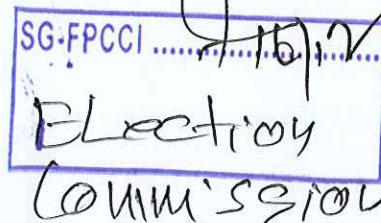 SG-FPCCI ..................
Election
Commission